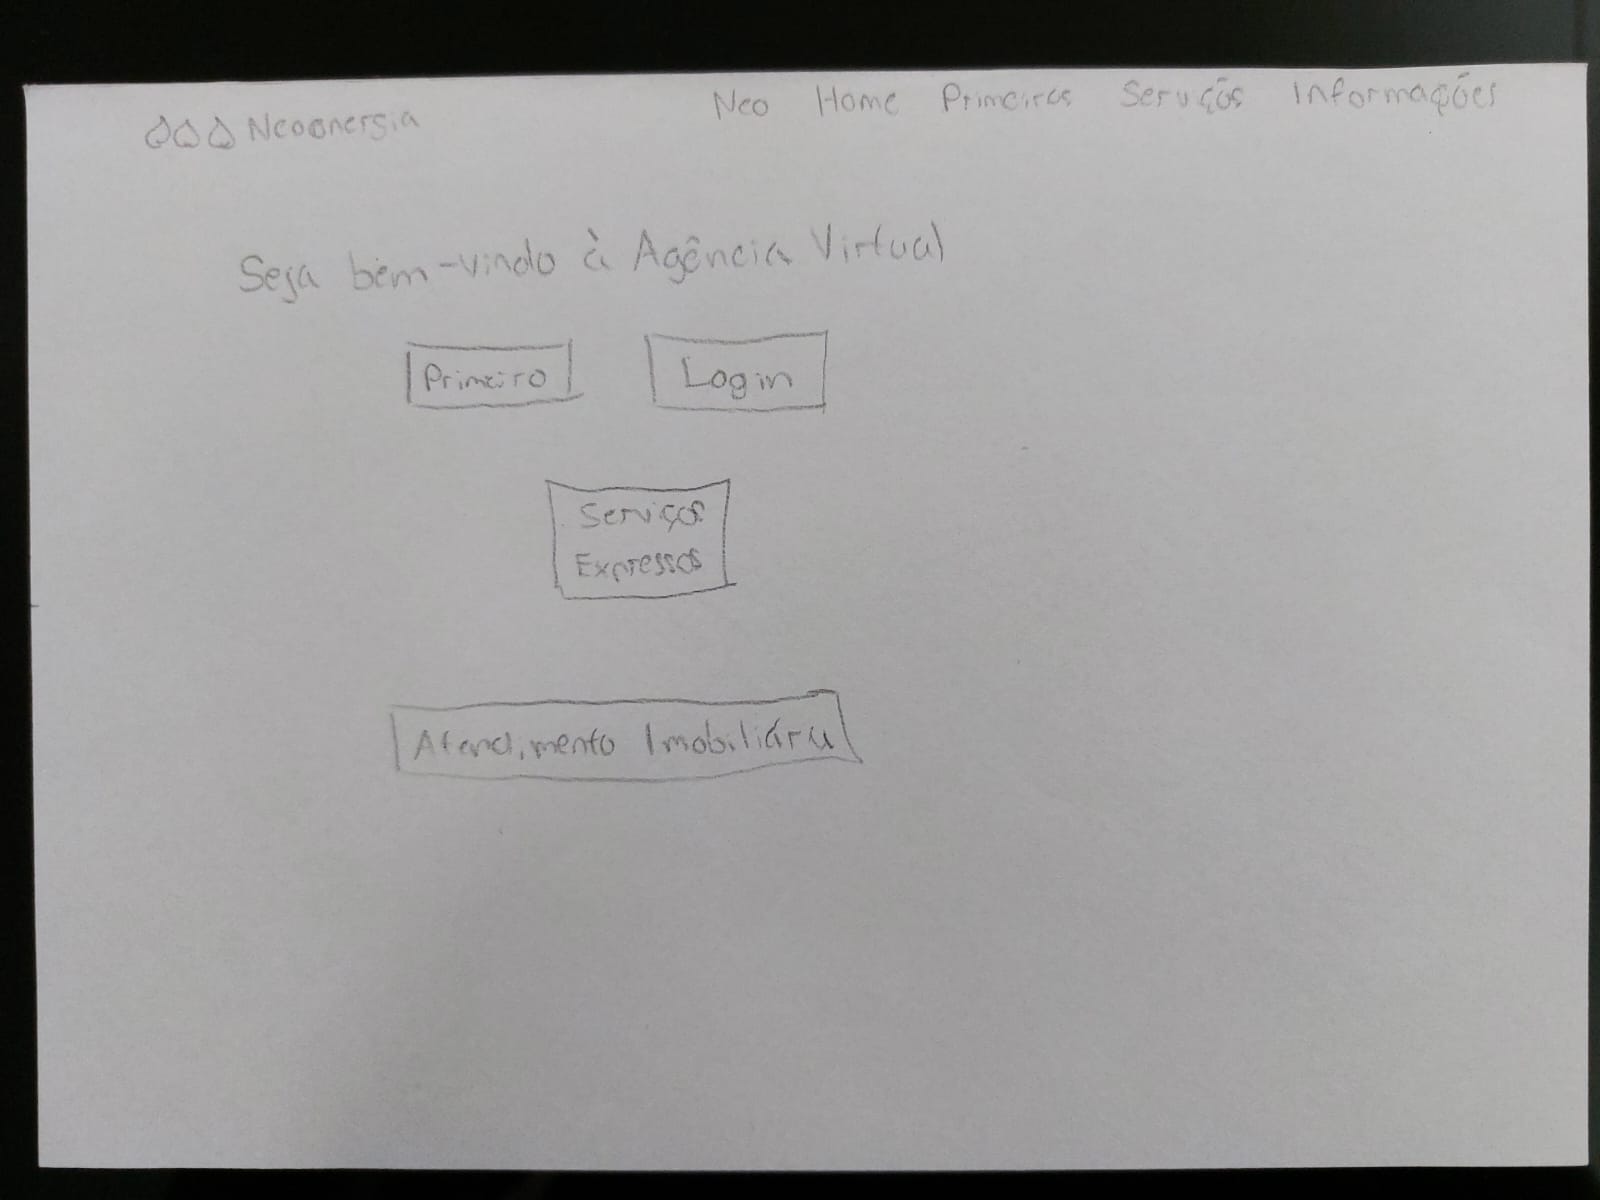 Neoenergia
Neo Home Primeiros Serviços Informações
Seja bem-vindo à Agência Virtual
Primeiro
Login
Serviços
Expressos
Atendimento Imobiliáru